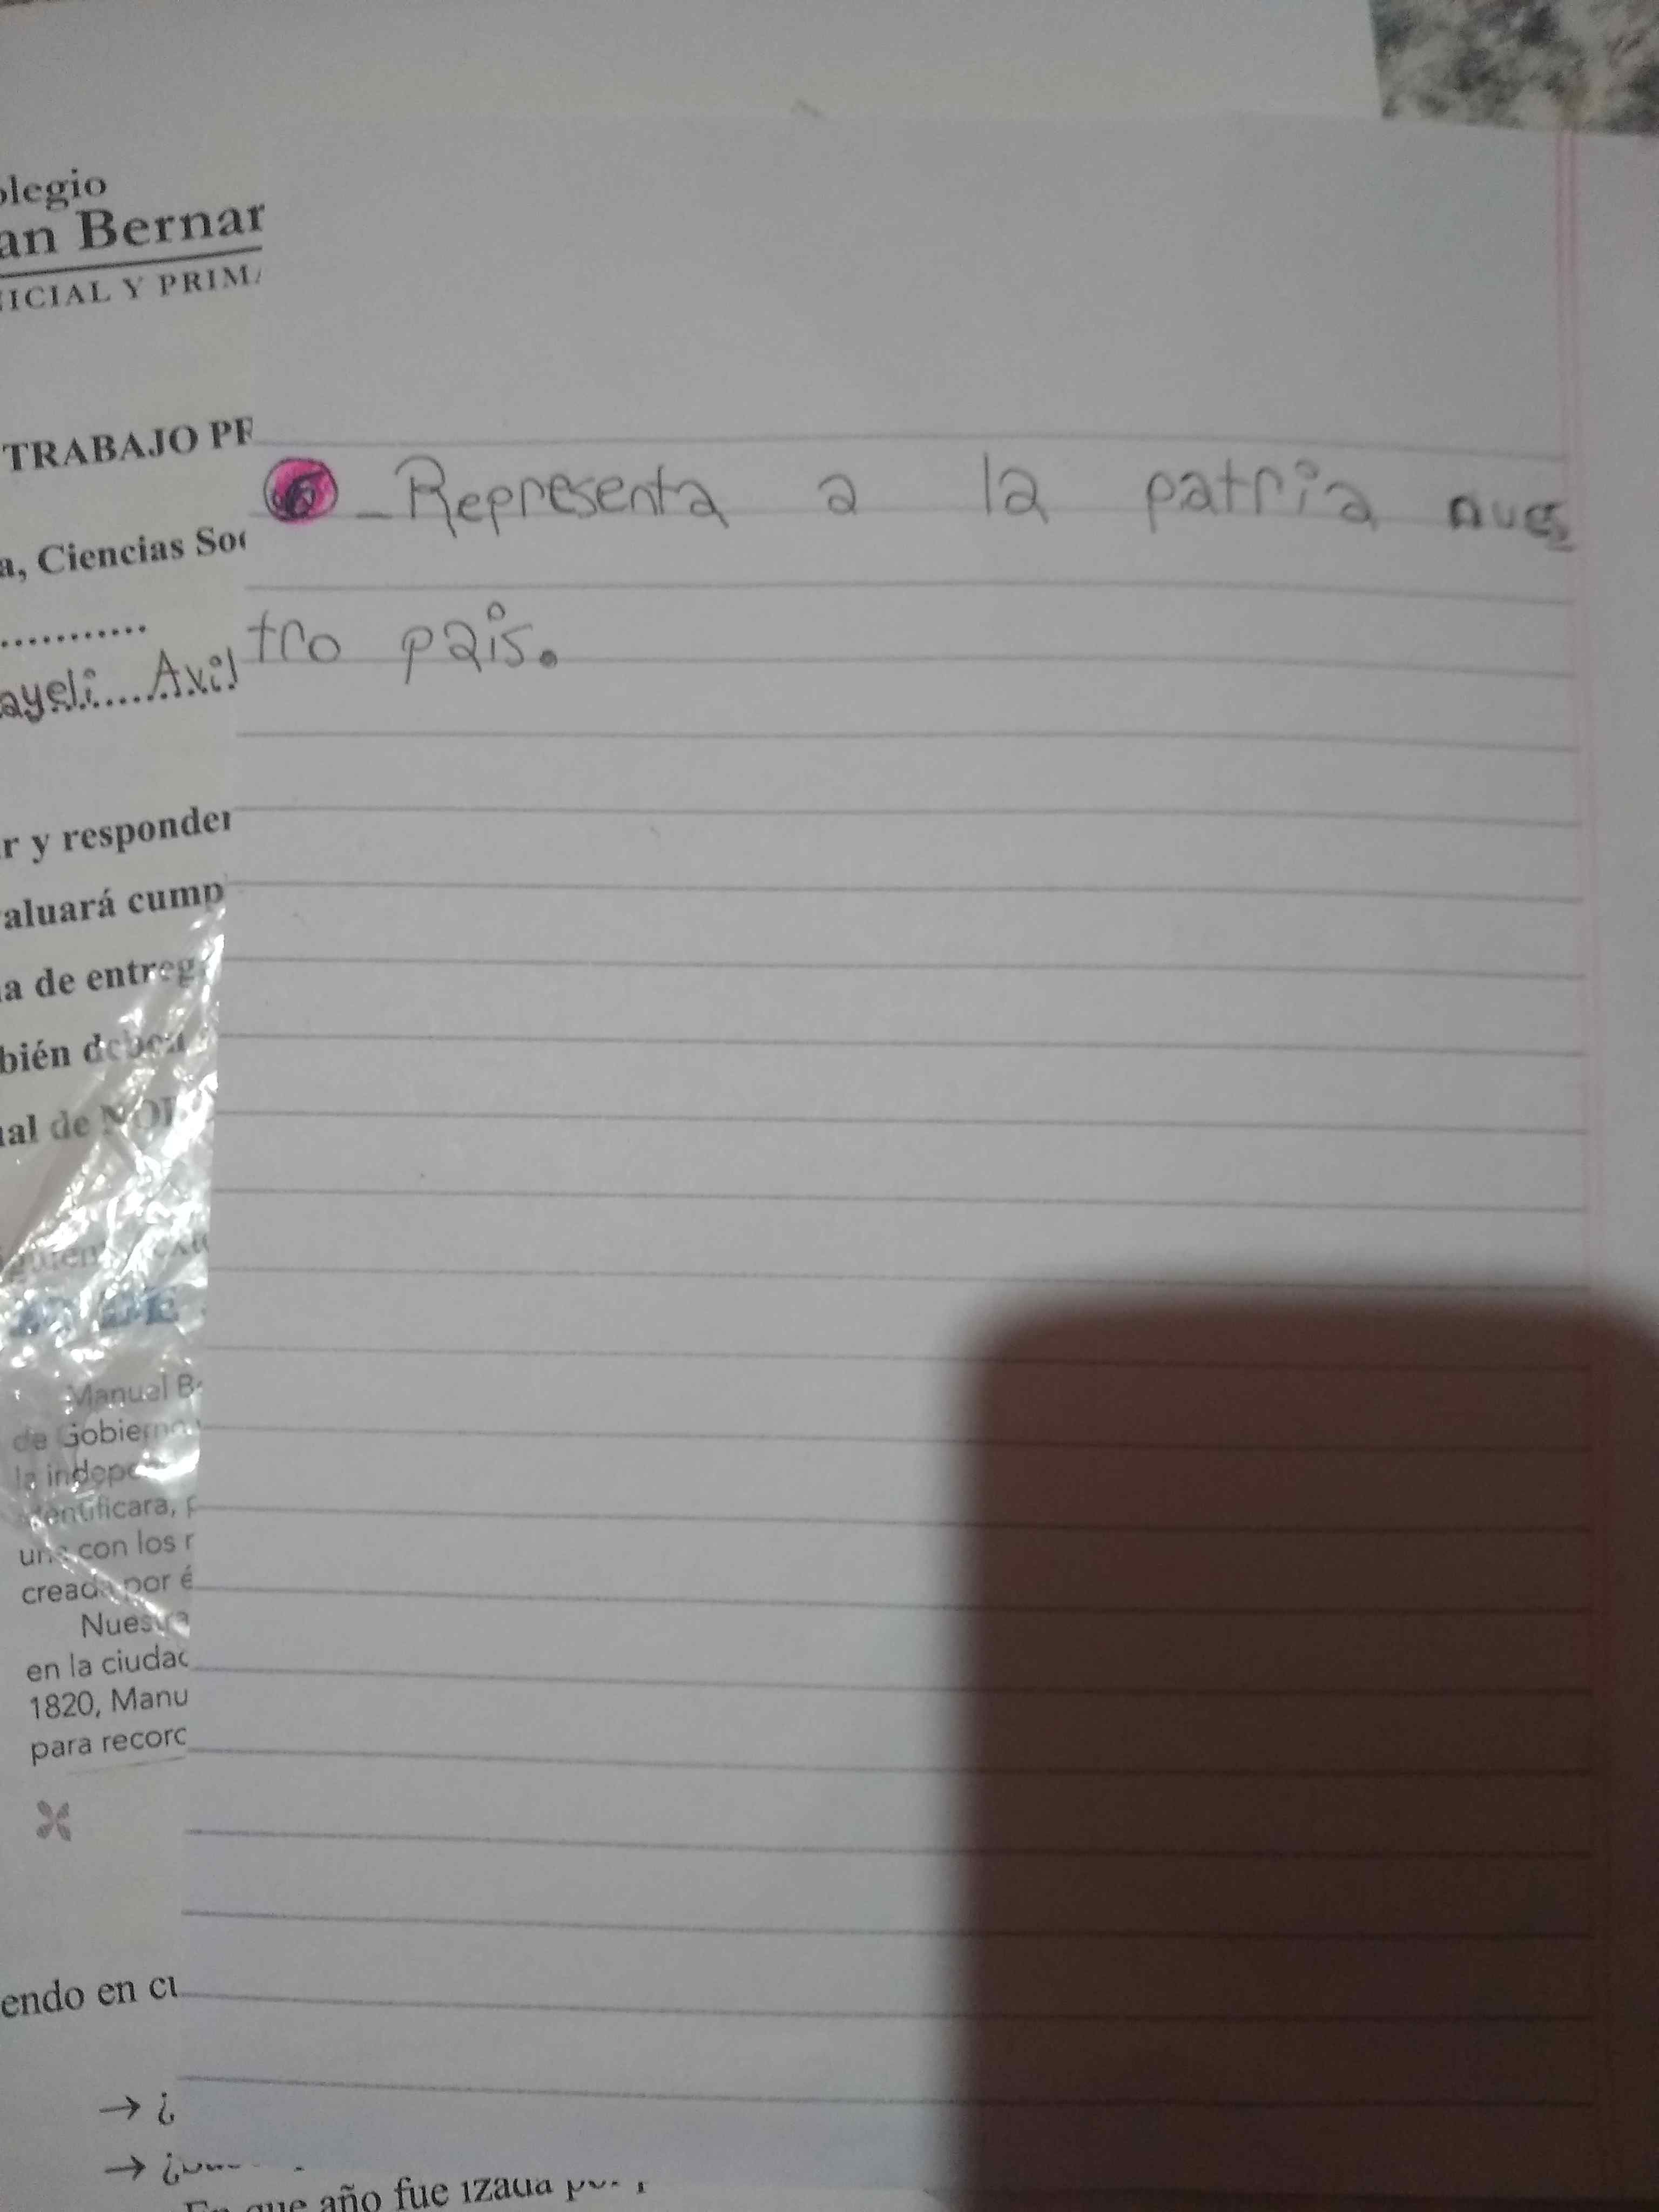 olegio
an Bernar
ICIAL Y PRIM
TRABAJO PR
6 - Representa a la patria nues
tro pais.
a, Ciencias Soc
...........
ayeli.....Avil
r y responder
aluará cump
a de entreg
bién deben
al de
Manual B
de Gobierno
la indepe
entificara, p
una con los r
creada por é
Nuestra
en la ciudad
1820, Manu
para record
endo en cu
→ ¿
→ ¿
En que año fue izada por